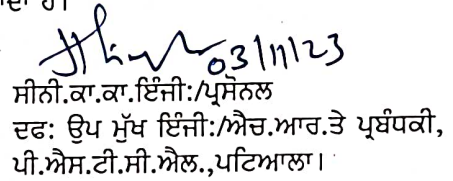 ਹੈ।
03/11/23
ਸੀਨੀ.ਕਾ.ਕਾ.ਇੰਜੀ:/ਪ੍ਰਸੋਨਲ
ਦਫ: ਉਪ ਮੁੱਖ ਇੰਜੀ:/ਐਚ.ਆਰ.ਤੇ ਪ੍ਰਬੰਧਕੀ,
ਪੀ.ਐਸ.ਟੀ.ਸੀ.ਐਲ.,ਪਟਿਆਲਾ।